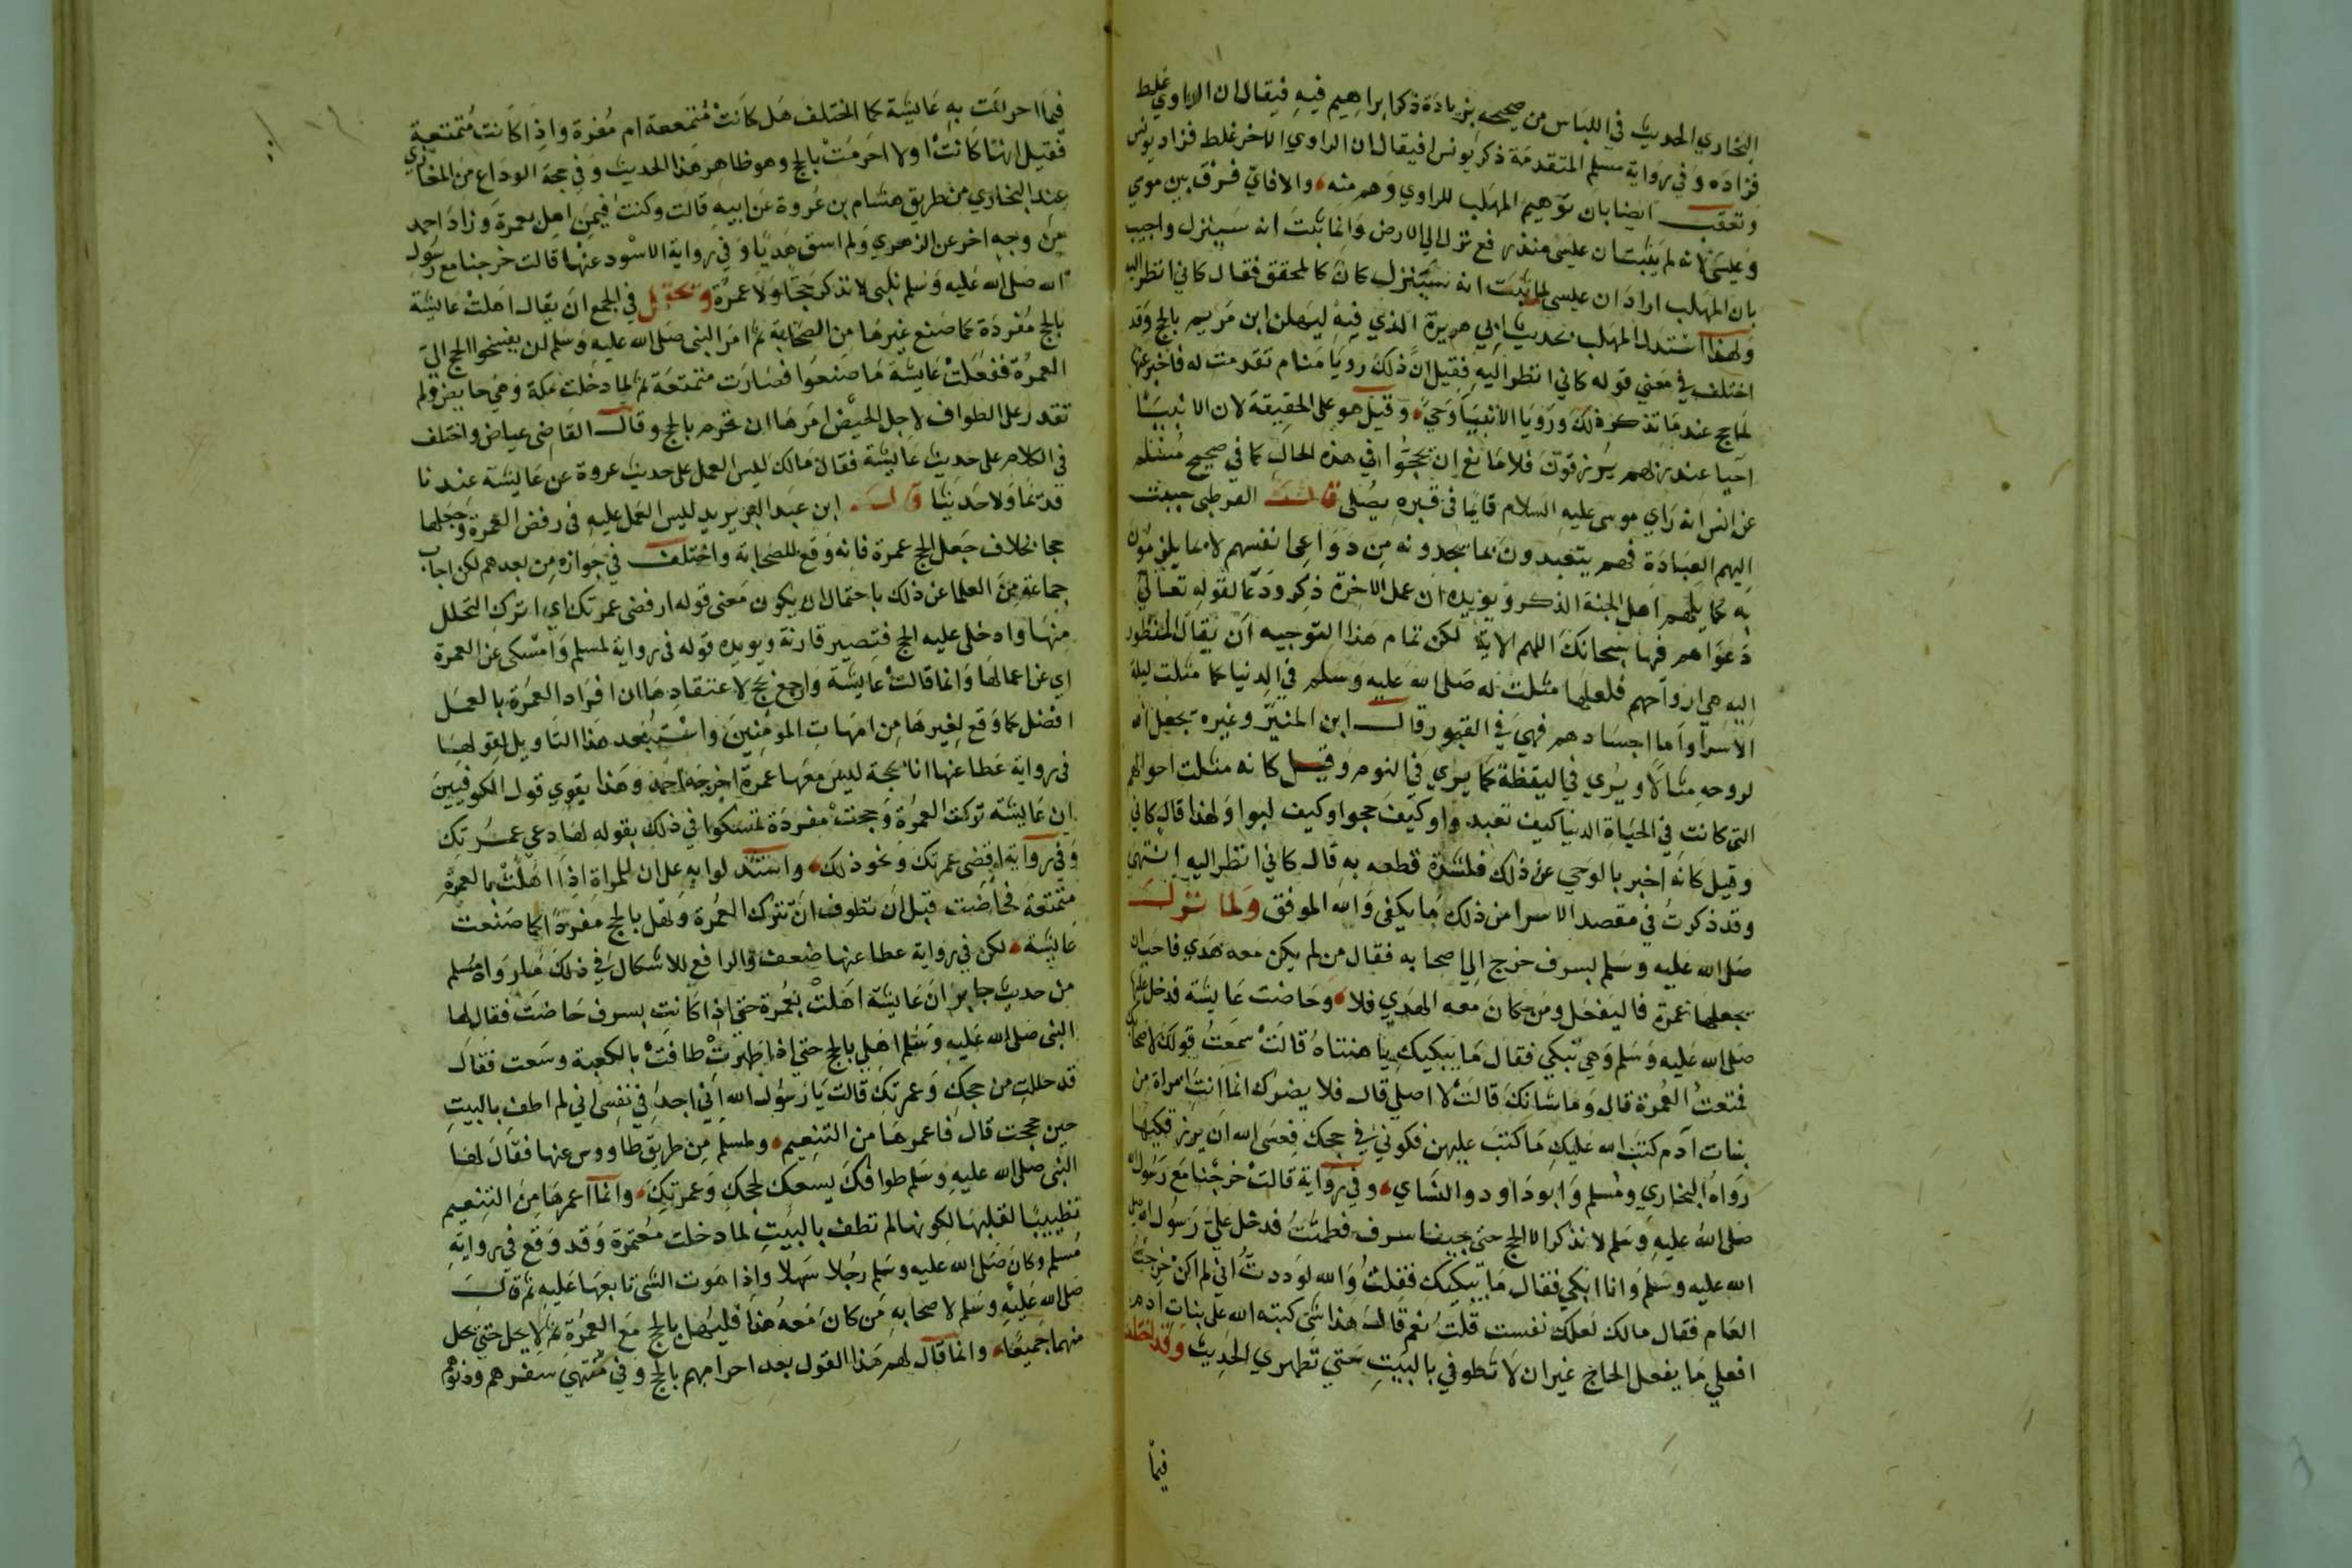 البخاري الحديث في اللباس من صحيحه بزيادة ذكر ابراهيم فيه فيقال ان الراوي غلط
فزاده وفي رواية مسلم المتقدمة ذكر يونس افيقال ان الراوي الاخر غلط فزاد يونس
وتعقب ايضا بان توهيم المهلب للراوي وهم منه والا فاي فرق بين موسي
وعيسى لانه لم يثبت ان عيسى منذ رفع نزل الي الارض وانما ثبت انه سينزل واجيب
بان المهلب اراد ان عيسى لما ثبت انه سينزل كان كالمحقق فقال كاني انظر اليه
ولهذا استدل المهلب بحديث ابي هريرة الذي فيه ليهلن ابن مريم بالحج وقد
اختلف في معني قوله كاني انظر اليه فقيل ان ذلك رويا منام تقدمت له فاخبر عنها
لما حج عند ما تذكر ذلك ورويا الانبيا وحي وقيل هو على الحقيقة لان الانبيا
احيا عند ربهم يرزقون فلا مانع ان يحجوا في هذه الحال كما في صحيح مسلم
عن انس انه راي موسى عليه السلام قايما في قبره يصلى قال القرطبى حببت
اليهم العبادة فهم يتعبدون بما يجدونه من دواعى انفسهم لا بما يلزمون
به كما يلهم اهل الجنة الذكر ويويده ان عمل الاخرة ذكر ودعا لقوله تعالي
دعواهم فيها سبحانك اللهم الاية لكن تمام هذا التوجيه ان يقال المنظور
اليه هي ارواحهم فلعلها مثلت له صلى الله عليه وسلم في الدنيا كما مثلت ليلة
الاسرا واما اجسادهم فهي في القبور قال ابن المنير وغيره يجعل الله
لروحه مثالا ويرى في اليقظة كما يرى في النوم وقيل كانه مثلت احوالهم
التى كانت في الحياة الدنيا كيف تعبدوا وكيف حجوا وكيف لبوا ولهذا قال كاني
وقيل كانه اخبر بالوحي عن ذلك فلشدة قطعه به قال كاني انظر اليه انتهى
وقد ذكرت في مقصد الاسرا من ذلك ما يكفى والله الموفق ولما نزل
صلى الله عليه وسلم بسرف خرج الي اصحابه فقال من لم يكن معه هدي فاحب ان
يجعلها عمرة فاليفعل ومن كان معه الهدي فلا وحاضت عايشة فدخل عليها
صلى الله عليه وسلم وهي تبكي فقال ما يبكيك يا هنتاه قالت سمعت قولك لاصحابك
فمنعت العمرة قال وما شانك قالت لا اصلي قال فلا يضرك انما انت امراة من
بنات آدم كتب الله عليك ما كتب عليهن فكوني في حجك فعسى الله ان يرزقكيها
رواه البخاري ومسلم وابوداود والنساي وفي رواية قالت خرجنا مع رسول الله
صلى الله عليه وسلم لا نذكر الا الحج حتى جينا سرف فطمثت فدخل علي رسول الله صلى
الله عليه وسلم وانا ابكي فقال ما يبكيك فقلت والله لوددت اني لم اكن خرجت
العام فقال مالك لعلك نفست قلت نعم قال هذا شى كتبه الله على بنات ادم
افعلي ما يفعل الحاج غير ان لا تطوفي بالبيت حتي تطهري الحديث وقد اختلف
فيما
فيما احرمت به عايشة كما اختلف هل كانت متمتعة ام مفردة واذا كانت متمتعة
فقيل انها كانت اولا احرمت بالحج وهو ظاهر هذا الحديث وفي حجة الوداع من المغازي
عند البخاري من طريق هشام بن عروة عن ابيه قالت وكنت فيمن اهل بعمرة وزاد احمد
من وجه اخر عن الزهري ولم اسق هديا وفي رواية الاسود عنها قالت خرجنا مع رسول
الله صلى الله عليه وسلم نلبى لا نذكر حجا ولا عمرة ويحتمل في الجمع ان يقال اهلت عايشة
بالحج مفردة كما صنع غيرها من الصحابة ثم امر النبى صلى الله عليه وسلم ان يفسخوا الحج الي
العمرة ففعلت عايشة ما صنعوا فصارت متمتعة ثم لما دخلت مكة وهي حايض ولم
تقدر على الطواف لاجل الحيض امرها ان تحرم بالحج وقال القاضى عياض واختلف
في الكلام على حديث عايشة فقال مالك ليس العمل على حديث عروة عن عايشة عندنا
قديما ولا حديثا قال ابن عبد البر يريد ليس العمل عليه في رفض العمرة وجعلها
حجا بخلاف جعل الحج عمرة فانه وقع للصحابة واختلف في جوازه من بعدهم لكن اجاب
جماعة من العلما عن ذلك باحتمال ان يكون معنى قوله ارفضى عمرتك اي اترك التحلل
منها وادخلى عليه الحج فتصير قارنة ويويده قوله في رواية لمسلم وامسكى عن العمرة
اي عن اعمالها وانما قالت عايشة وارجع بحج لاعتقادها ان افراد العمرة بالعمل
افضل كما وقع لغيرها من امهات المومنين واستبعد هذا التاويل لقولها
في رواية عطا عنها انا بحجة ليس معها عمرة اخرجه احمد وهذا يقوي قول الكوفيين
ان عايشة تركت العمرة وحجت مفردة تمسكوا في ذلك بقوله لها دعي عمرتك
وفي رواية اقضى عمرتك ونحو ذلك واستدلوا به على ان للمراة اذا اهلت بالعمرة
متمتعة فحاضت قبل ان تطوف ان تترك العمرة وتهل بالحج مفردا كما صنعت
عايشة لكن في رواية عطا عنها ضعف والرافع للاشكال في ذلك ما رواه مسلم
من حديث جابر ان عايشة اهلت بعمرة حتى اذا كانت بسرف حاضت فقال لها
النبى صلى الله عليه وسلم اهلي بالحج حتي اذا طهرت طافت بالكعبة وسعت فقال
قد حللت من حجك وعمرتك قالت يا رسول الله اني اجد في نفسى اني لم اطف بالبيت
حين حججت قال فاعمرها من التنعيم ولمسلم من طريق طاووس عنها فقال لها
النبى صلى الله عليه وسلم طوافك يسعك لحجك وعمرتك وانما اعمرها من التنعيم
تطييبا لقلبها لكونها لم تطف بالبيت لما دخلت معتمرة وقد وقع في رواية
مسلم وكان صلى الله عليه وسلم رجلا سهلا واذا هوت الشى تابعها عليه ثم قال
صلى الله عليه وسلم لاصحابه من كان معه هدا فليهل بالحج مع العمرة ثم لا يحل حتي يحل
منهما جميعا وانما قال لهم هذا القول بعد احرامهم بالحج وفي منتهي سفرهم ودنوهم